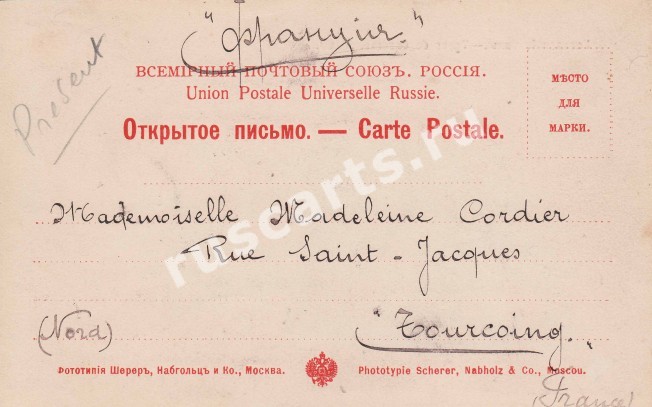 "Франція"
Present
ВСЕМІРНЫЙ ПОЧТОВЫЙ СОЮЗЪ. РОССІЯ.
Union Postale Universelle Russie.
МѢСТО
ДЛЯ
МАРКИ.
Открытое письмо. — Carte Postale.
Mademoiselle Madeleine Cordier
Rue Saint-Jacques
(Nord)
"Tourcoing."
Фототипія Шереръ, Набгольцъ и Ко., Москва.
Phototypie Scherer, Nabholz & Co., Moscou.
(France)
ruscarts.ru